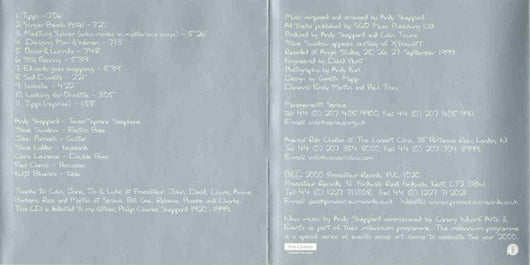 1. Tipp - 7.06
2. Sugar Beach Hotel - 7.20
3. Meeting Sylvia (who moves in mysterious ways) - 5.26
4. Dancing Man & Woman - 7.13
5. Oscar & Lucinda - 7.48
6. Still Passing - 5.39
7. Edward goes shopping - 5.39
8. Sad - 2.21
9. Isabella - 4.22
10. Looking for Ornette - 3.05
11. Tipp (reprise) - 1.58
Andy Sheppard - Tenor/Soprano Saxophone
Steve Swallow - Electric Bass
John Parricelli - Guitar
Steve Lodder - Keyboards
Chris Laurence - Double Bass
Paul Clarvis - Percussion
Kuljit Bhamra - Tabla
Thanks to Colin, Jane, Jo & Luke at Provocateur, John, David, Claire, Annie,
Barbara, Ross and Martin at Serious, Bill Gee, Rebecca, Phoebe and Charlie.
This CD is dedicated to my father, Philip Charles Sheppard 1920-1999.
Music composed and arranged by Andy Sheppard
All Tracks published by SGO Music Publishing Ltd
Produced by Andy Sheppard and Colin Towns
Steve Swallow appears courtesy of XtraWATT
Recorded at Angel Studios, 25, 26, 27 September 1999
Engineered by David Hunt
Photography by Andy Earl
Design by Gareth
Martin and Paul Tracy
Management: Serious
Tel: 44 (0) 207 405 9900, Fax: 44 (0) 207 405 9911
Agency: Rob Challice at The Concert Clinic,
(P)(C) 2000 Provocateur Records PVC 1020
Provocateur Records
New music by Andy Sheppard commissioned by Canary Wharf Arts &
Events as part of their millennium programme. The millennium programme
is a special series of events across art forms to celebrate the year 2000